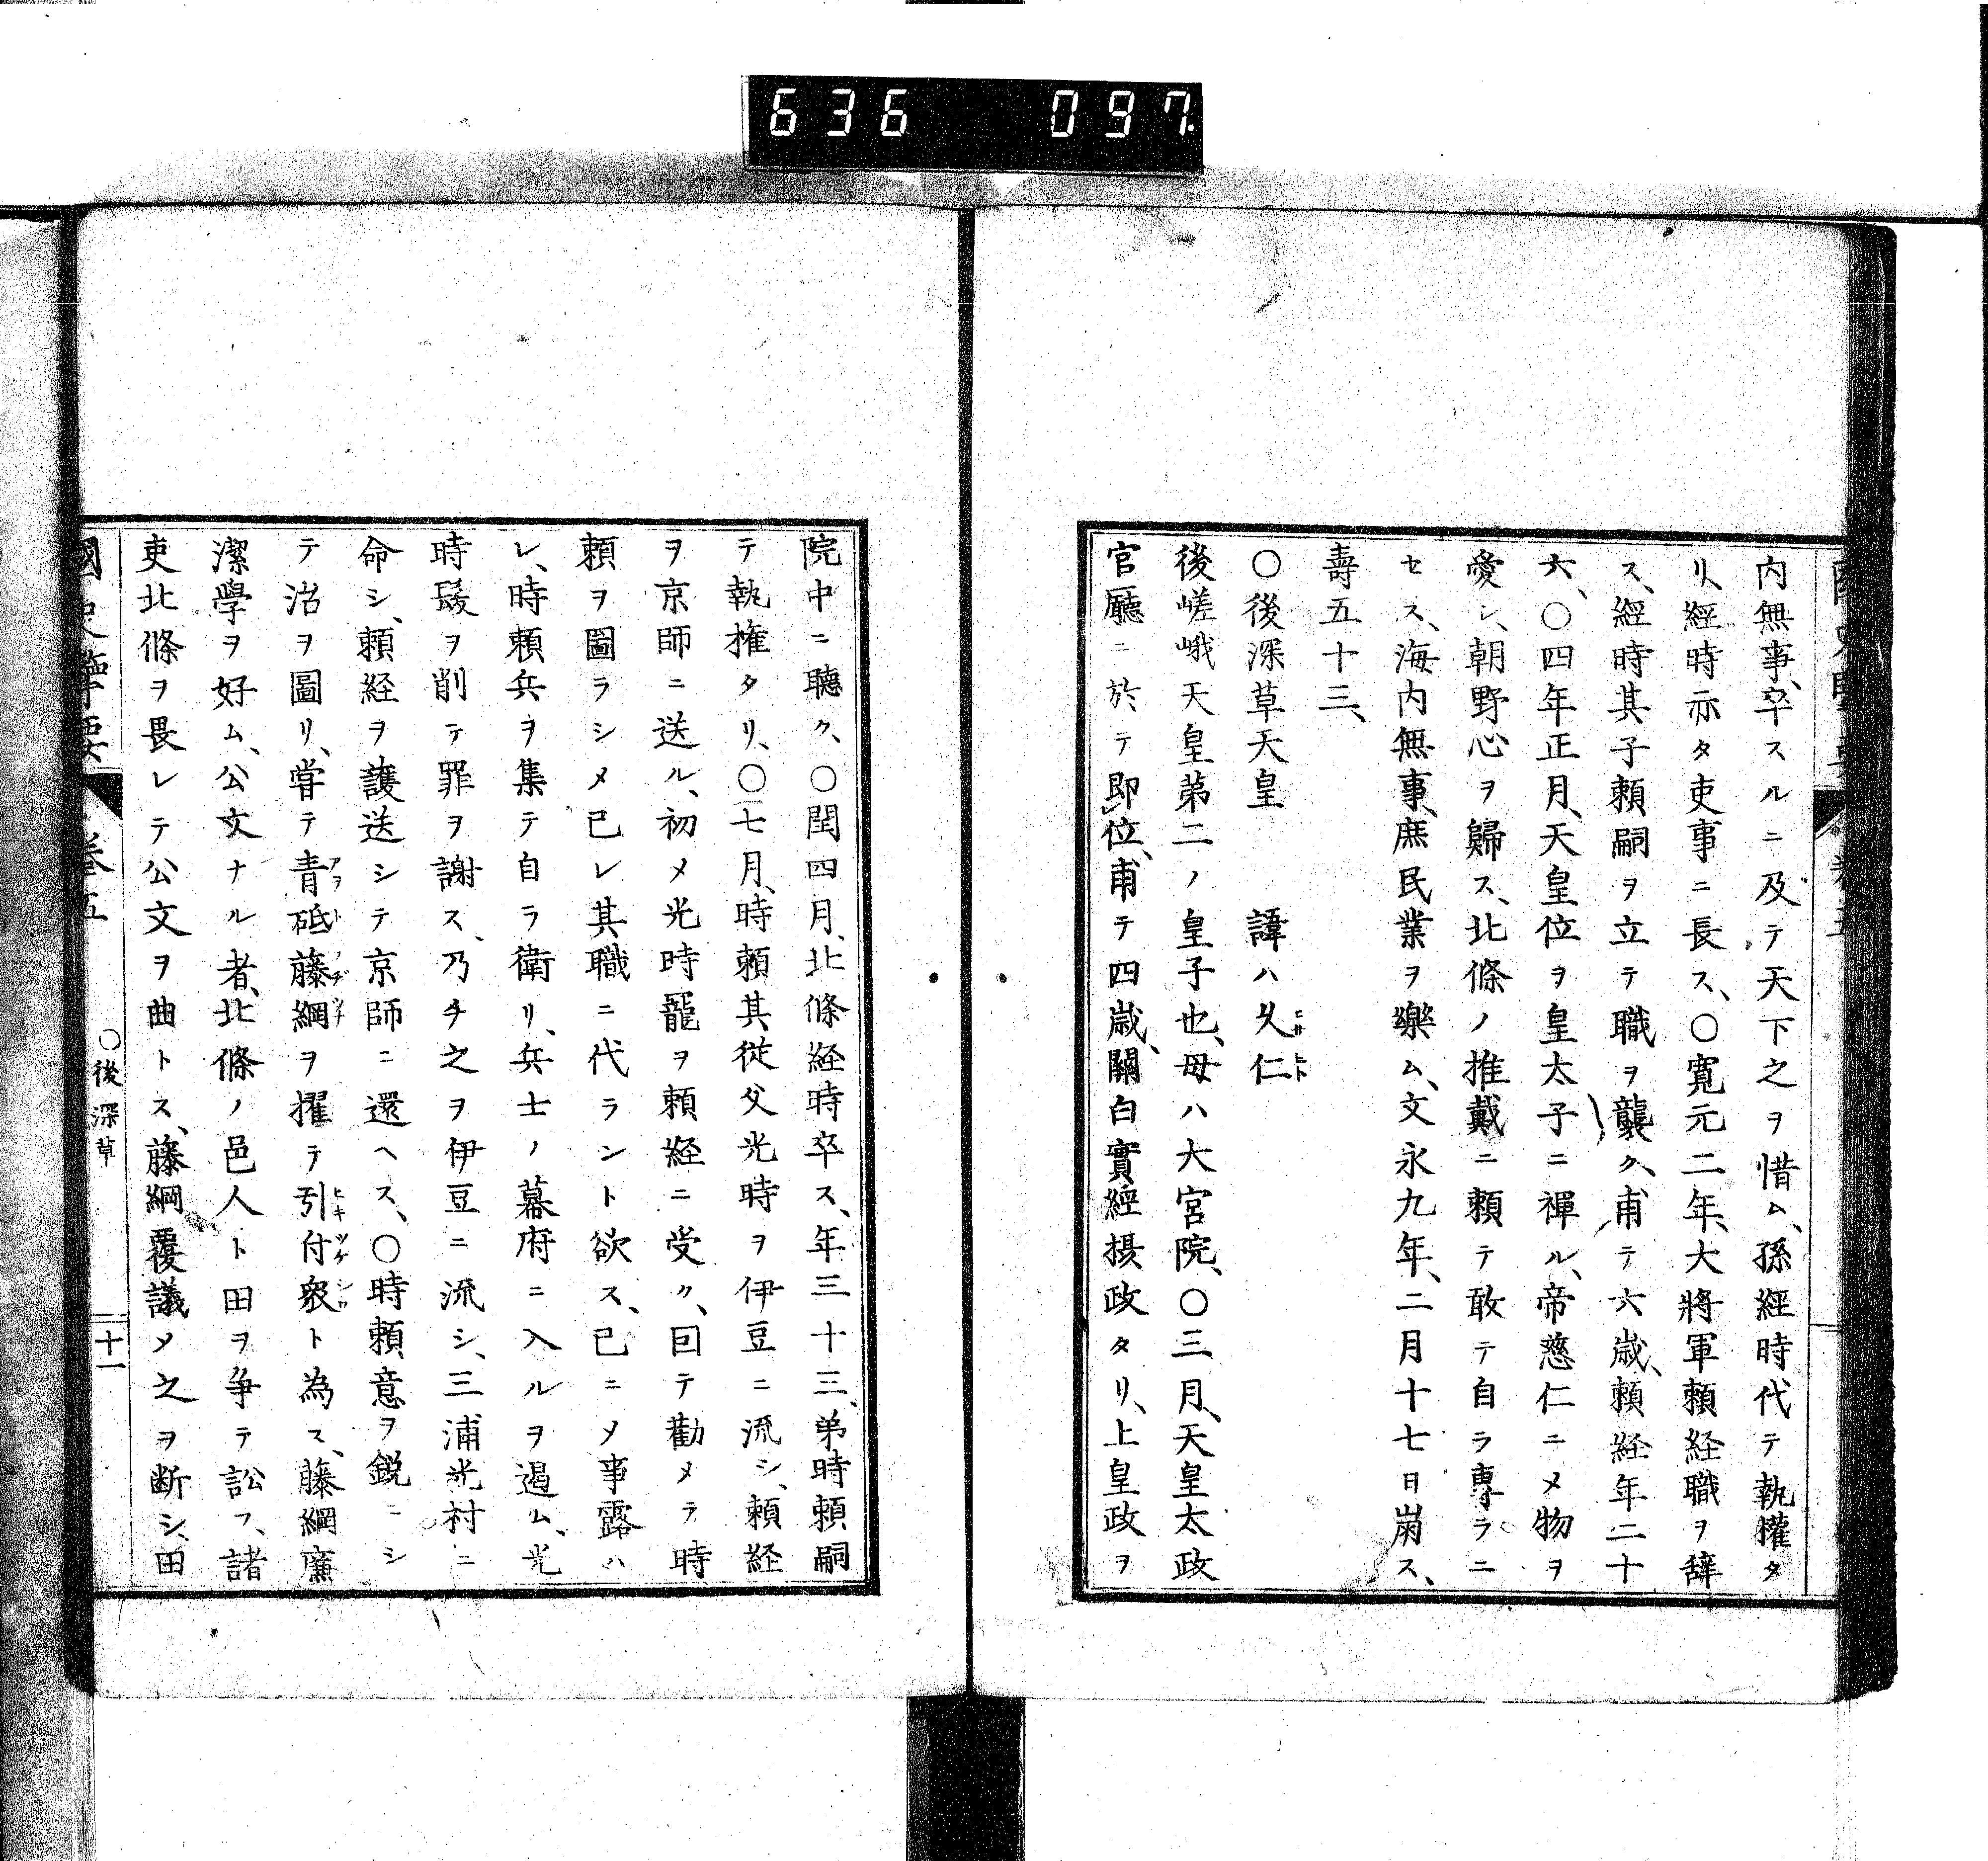 636 097
内無事、卒スルニ及テ天下之ヲ惜ム、孫經時代テ執權タ
リ、經時亦タ吏事ニ長ス、〇寛元二年、大將軍頼経職ヲ辞
ス、經時其子頼嗣ヲ立テ職ヲ襲ク、甫テ六歳、頼経年二十
六、〇四年正月、天皇位ヲ皇太子ニ禅ル、帝慈仁ニメ物ヲ
愛シ、朝野心ヲ歸ス、北條ノ推戴ニ頼テ敢テ自ラ專ラニ
セス、海内無事、庶民業ヲ樂ム、文永九年、二月十七日崩ス、
壽五十三、
〇後深草天皇 諱ハ久仁
後嵯峨天皇第二ノ皇子也、母ハ大宮院、〇三月、天皇太政
官廳ニ於テ即位、甫テ四歳、關白實經摂政タリ、上皇政ヲ
院中ニ聽ク、〇閏四月、北條経時卒ス、年三十三、弟時頼嗣
テ執権タリ、〇七月、時頼其従父光時ヲ伊豆ニ流シ、頼経
ヲ京師ニ送ル、初メ光時寵ヲ頼経ニ受ク、囙テ勸メテ時
頼ヲ圖ラシメ已レ其職ニ代ラント欲ス、已ニメ事露ハ
レ、時頼兵ヲ集テ自ラ衛リ、兵士ノ幕府ニ入ルヲ遏ム、光
時髪ヲ削テ罪ヲ謝ス、乃チ之ヲ伊豆ニ流シ、三浦光村ニ
命シ、頼経ヲ護送シテ京師ニ還ヘス、〇時頼意ヲ鋭ニシ
テ治ヲ圖リ、甞テ青砥藤綱ヲ擢テ引付衆ト為ス、藤綱廉
潔學ヲ好ム、公文ナル者、北條ノ邑人ト田ヲ争テ訟フ、諸
吏北條ヲ畏レテ公文ヲ曲トス、藤綱覆議メ之ヲ断シ、田
國史擥要 卷五 〇後深草 十一